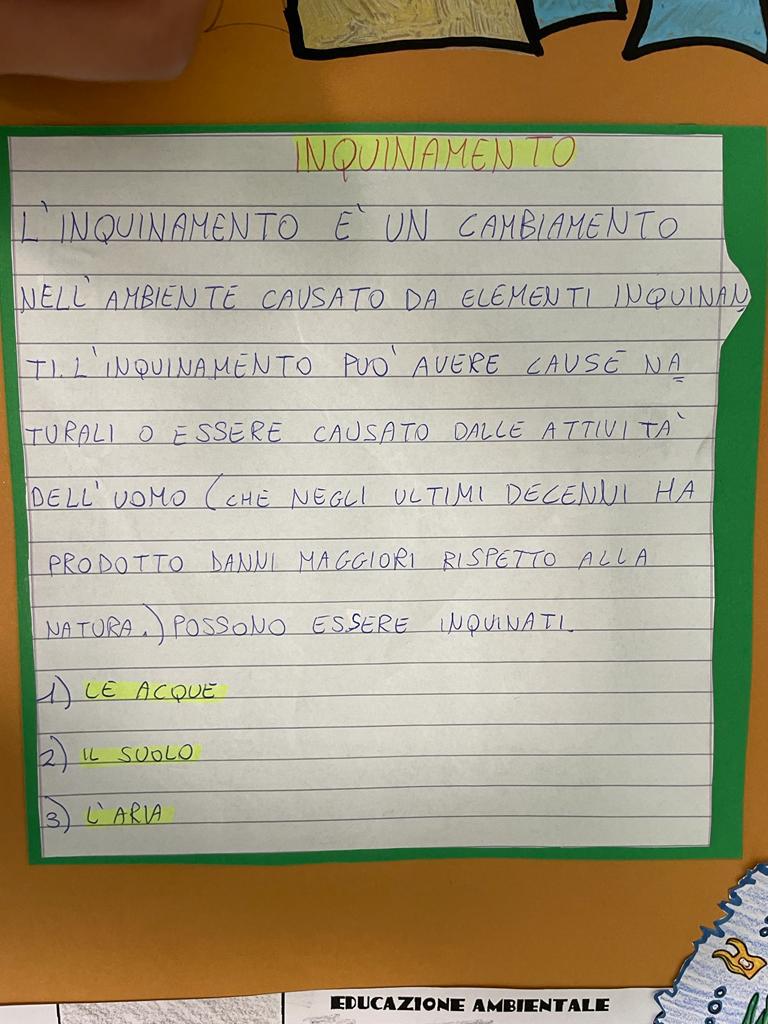 INQUINAMENTO
L'INQUINAMENTO E' UN CAMBIAMENTO
NELL'AMBIENTE CAUSATO DA ELEMENTI INQUINAN
TI. L'INQUINAMENTO PUO' AVERE CAUSE NA
TURALI O ESSERE CAUSATO DALLE ATTIVITA'
DELL'UOMO (CHE NEGLI ULTIMI DECENNI HA
PRODOTTO DANNI MAGGIORI RISPETTO ALLA
NATURA.) POSSONO ESSERE INQUINATI.
1) LE ACQUE
2) IL SUOLO
3) L'ARIA
EDUCAZIONE AMBIENTALE